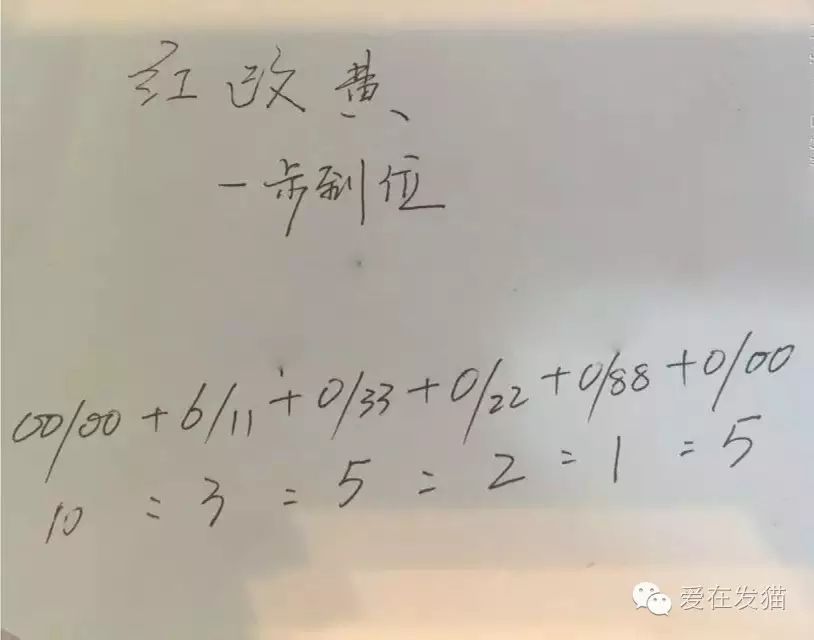 红改黄
一步到位
00/00+6/11+0/33+0/22+0/88+0/00
10:3:5:2:1:5
爱在发猫